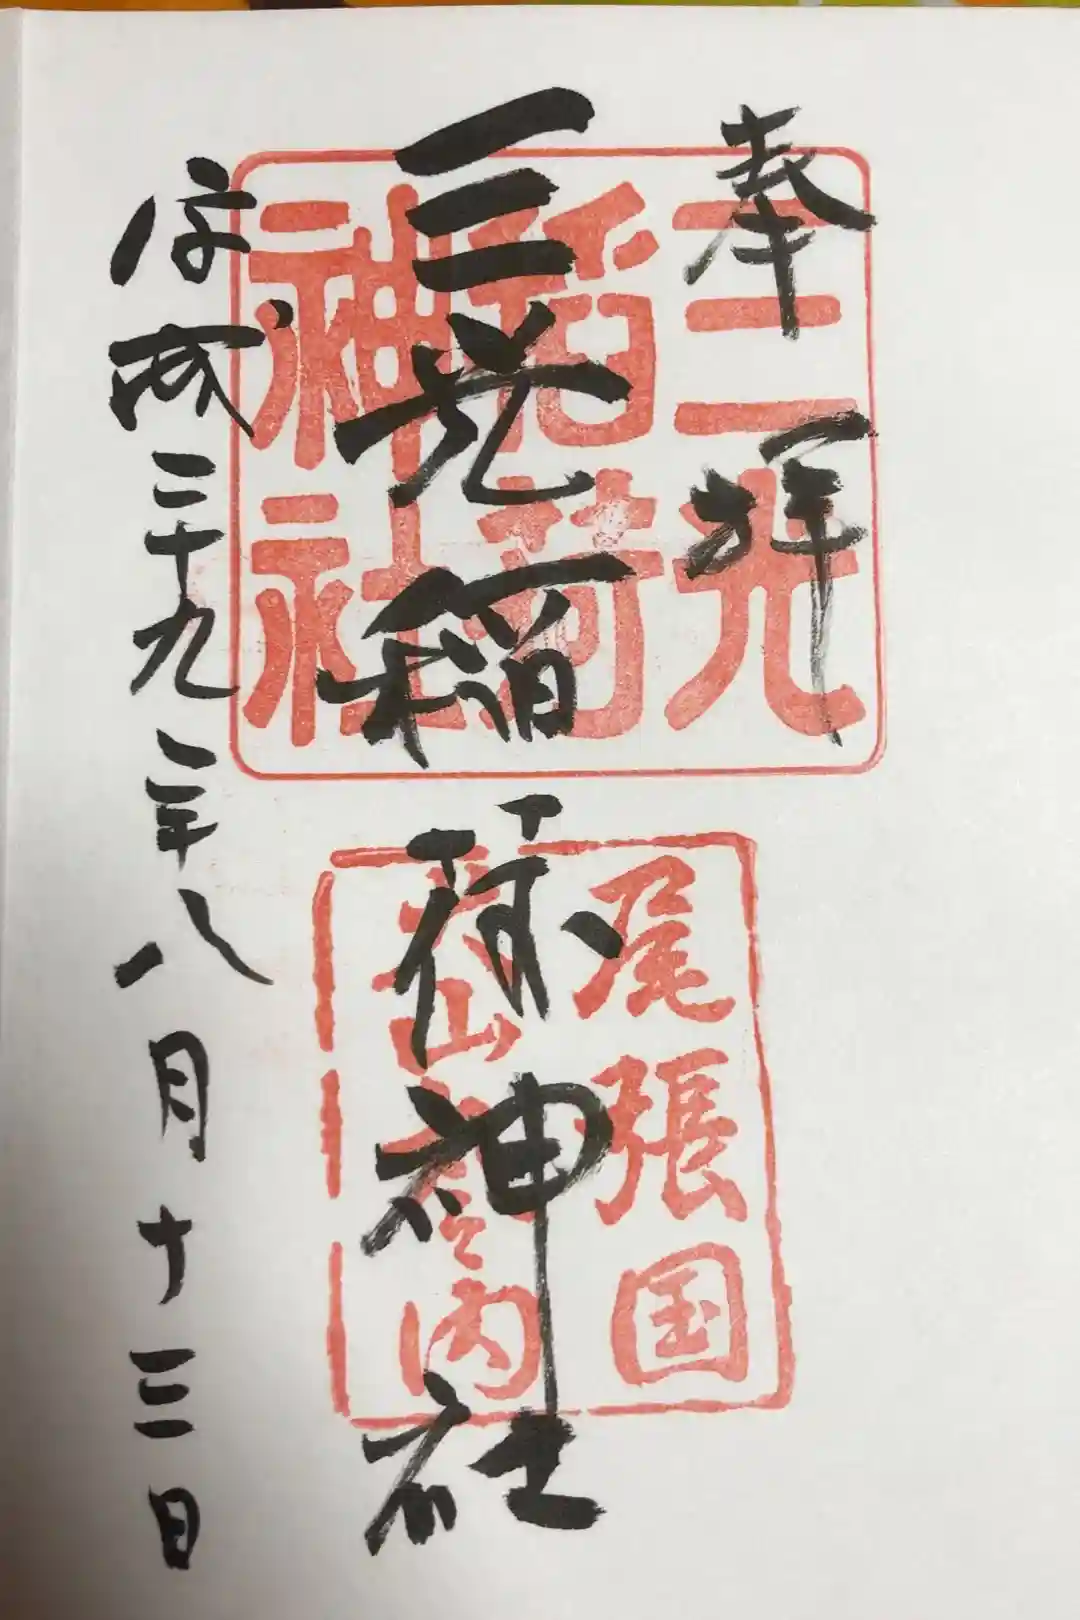 奉拝
三光稲荷神社
平成二十九年八月十三日
三光
稲荷
神社
尾張国
犬山城内